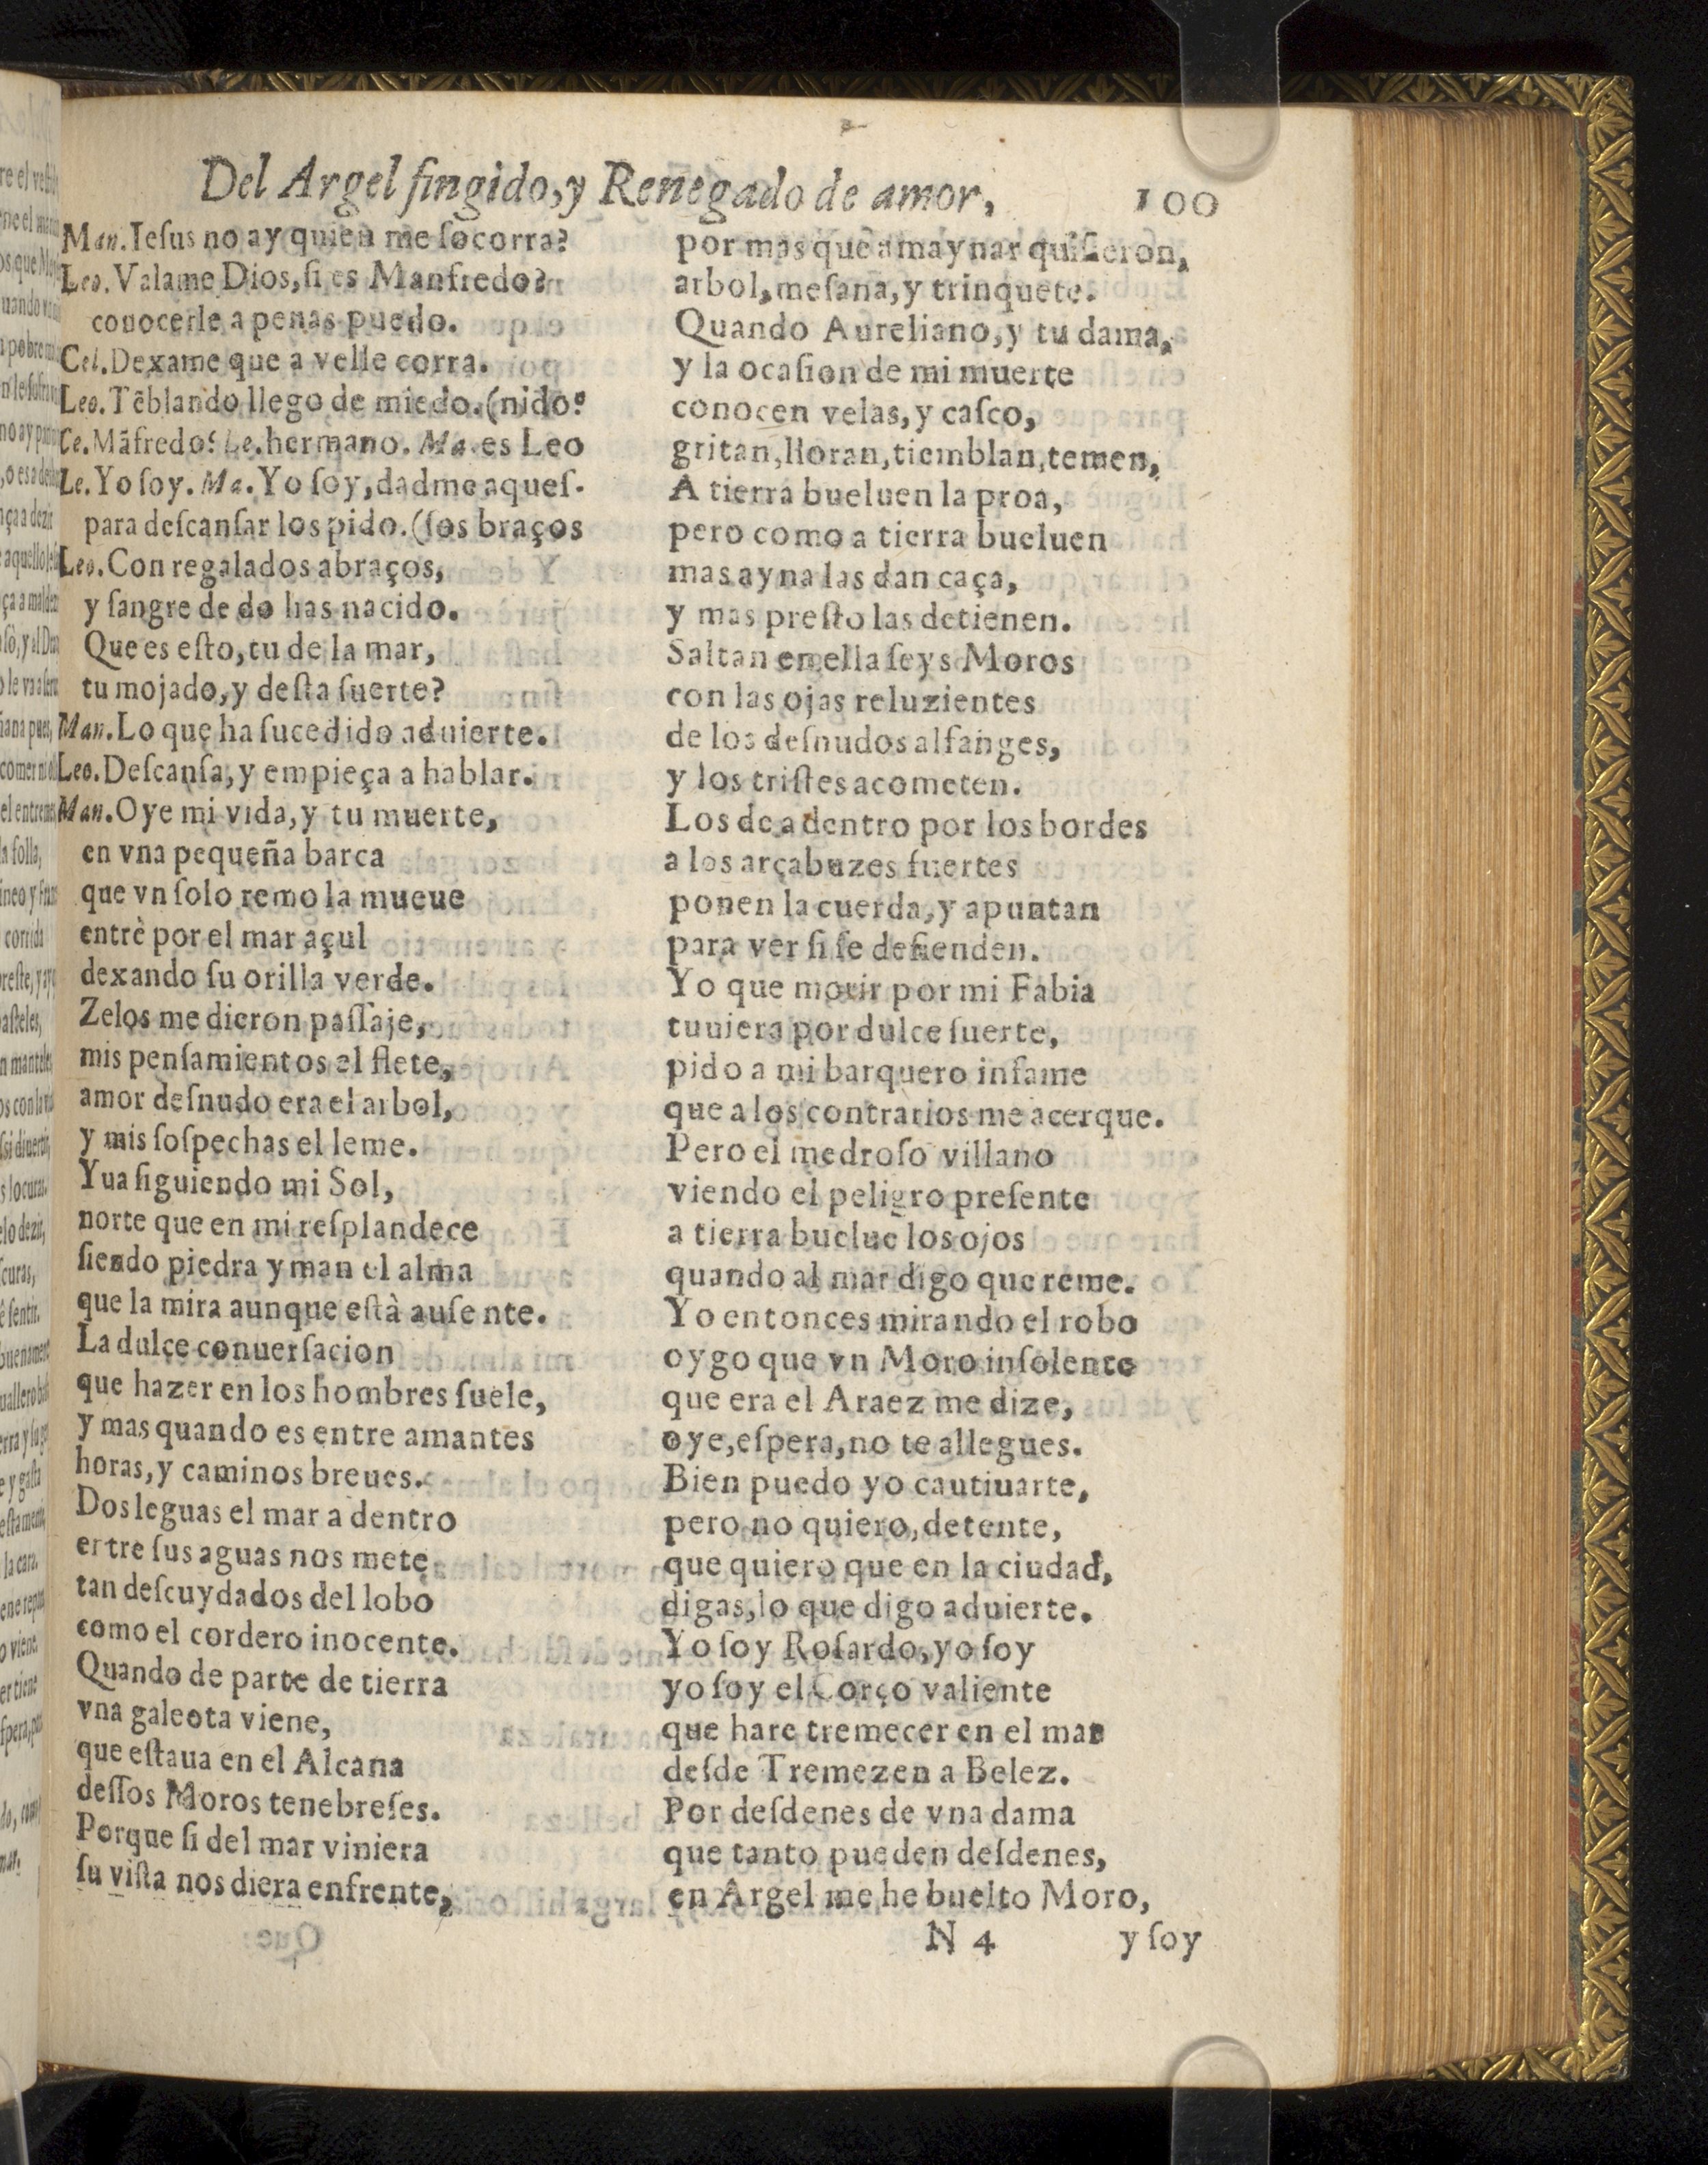 Del Argel fingido, y Renegado de amor, 100
Man. Iesus no ay quien me socorra?
Leo. Valame Dios, si es Manfredo?
conocerle a penas puedo.
Cel. Dexame que a velle corra.
Leo. Tẽblando llego de miedo. (nido?
Ce. Mãfredo? Le. hermano. Ma. es Leo
Le. Yo soy. Ma. Yo soy, dadme aques-
para descansar los pido. (sos braços
Leo. Con regalados abraços,
y sangre de do has nacido.
Que es esto, tu de la mar,
tu mojado, y desta suerte?
Man. Lo que ha sucedido aduierte.
Leo. Descansa, y empieça a hablar.
Man. Oye mi vida, y tu muerte,
en vna pequeña barca
que vn solo remo la mueue
entrè por el mar açul
dexando su orilla verde.
Zelos me dieron passaje,
mis pensamientos el flete,
amor desnudo era el arbol,
y mis sospechas el leme.
Yua siguiendo mi Sol,
norte que en mi resplandece
siendo piedra yman el alma
que la mira aunque està ausente.
La dulçe conuersacion
que hazer en los hombres suele,
y mas quando es entre amantes
horas, y caminos breues.
Dos leguas el mar a dentro
ertre sus aguas nos mete
tan descuydados del lobo
como el cordero inocente.
Quando de parte de tierra
vna galeota viene,
que estaua en el Alcana
dessos Moros tenebreses.
Porque si del mar viniera
su vista nos diera enfrente,
por mas que amaynar quisieron,
arbol, mesana, y trinquete.
Quando Aureliano, y tu dama,
y la ocasion de mi muerte
conocen velas, y casco,
gritan, lloran, tiemblan, temen,
A tierra bueluen la proa,
pero como a tierra bueluen
mas ayna las dan caça,
y mas presto las detienen.
Saltan en ella seys Moros
con las ojas reluzientes
de los desnudos alfanges,
y los tristes acometen.
Los de a dentro por los bordes
a los arçabuzes fuertes
ponen la cuerda, y apuntan
para ver si se defienden.
Yo que morir por mi Fabia
tuuiera por dulce suerte,
pido a mi barquero infame
que a los contrarios me acerque.
Pero el medroso villano
viendo el peligro presente
a tierra buelue los ojos
quando al mar digo que reme.
Yo entonces mirando el robo
oygo que vn Moro insolente
que era el Araez me dize,
oye, espera, no te allegues.
Bien puedo yo cautiuarte,
pero no quiero, detente,
que quiero que en la ciudad,
digas, lo que digo aduierte.
Yo soy Rosardo, yo soy
yo soy el Corço valiente
que hare tremecer en el mar
desde Tremezen a Belez.
Por desdenes de vna dama
que tanto pueden desdenes,
en Argel me he buelto Moro,
N 4 y soy